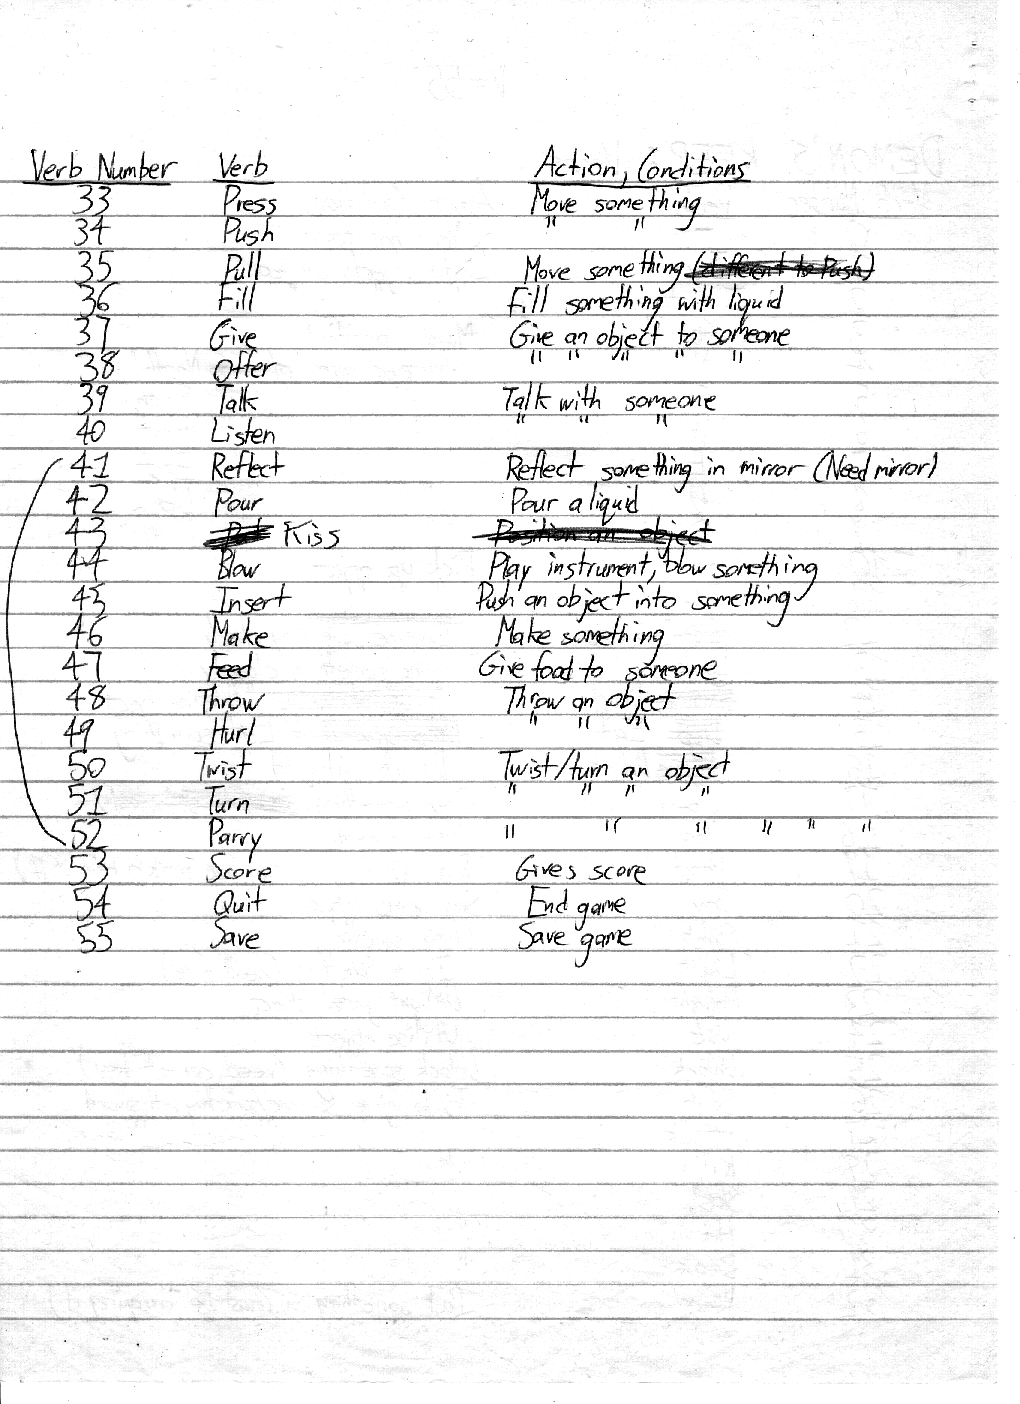 Verb Number Verb Action, Conditions
33 Press Move something
34 Push " "
35 Pull Move something (different to Push)
36 Fill Fill something with liquid
37 Give Give an object to someone
38 Offer " " " " "
39 Talk Talk with someone
40 Listen " " "
41 Reflect Reflect something in mirror (Need mirror)
42 Pour Pour a liquid
43 Kiss Position an object
44 Blow Play instrument, blow something
45 Insert Push an object into something
46 Make Make something
47 Feed Give food to someone
48 Throw Throw an object
49 Hurl " " "
50 Twist Twist/turn an object
51 Turn " " " "
52 Parry " " " " " "
53 Score Gives score
54 Quit End game
55 Save Save game